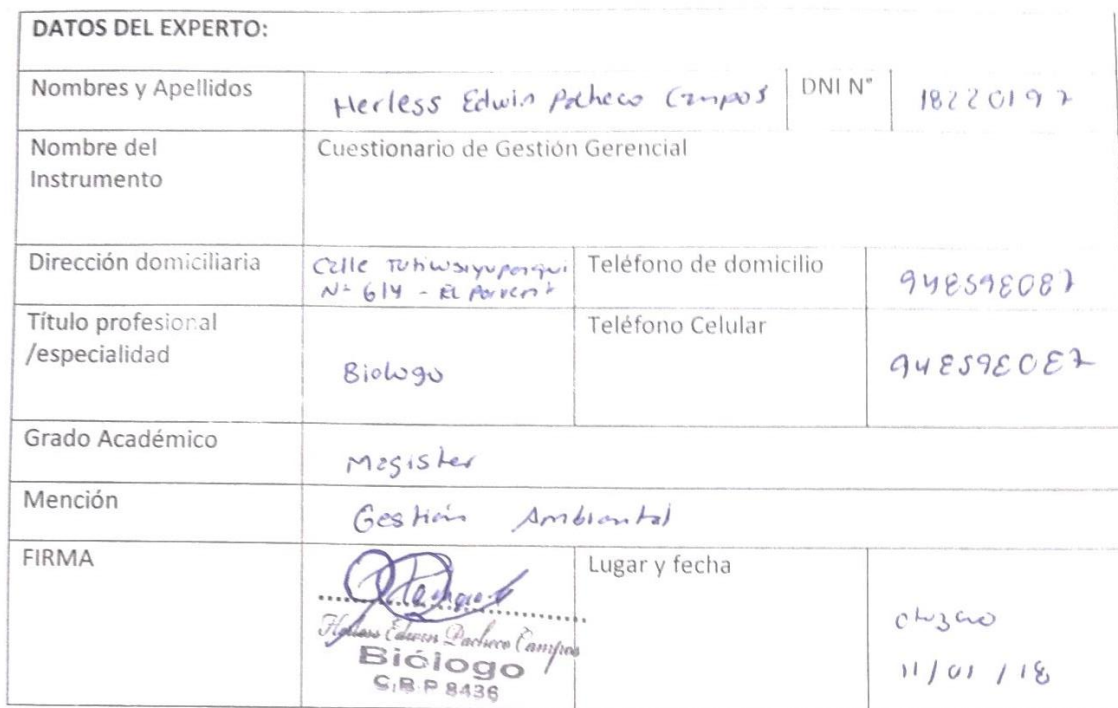 DATOS DEL EXPERTO:
Nombres y Apellidos
Herless Edwin Pacheco Campos
DNI N°
18220197
Nombre del
Instrumento
Cuestionario de Gestión Gerencial
Dirección domiciliaria
Calle
N° 614 - El Porvenir
Teléfono de domicilio
948598087
Título profesional
/especialidad
Biologo
Teléfono Celular
948598087
Grado Académico
Magister
Mención
Gestión Ambiental
FIRMA
Herless Edwin Pacheco Campos
Biólogo
C.B.P 8436
Lugar y fecha
11/01/18